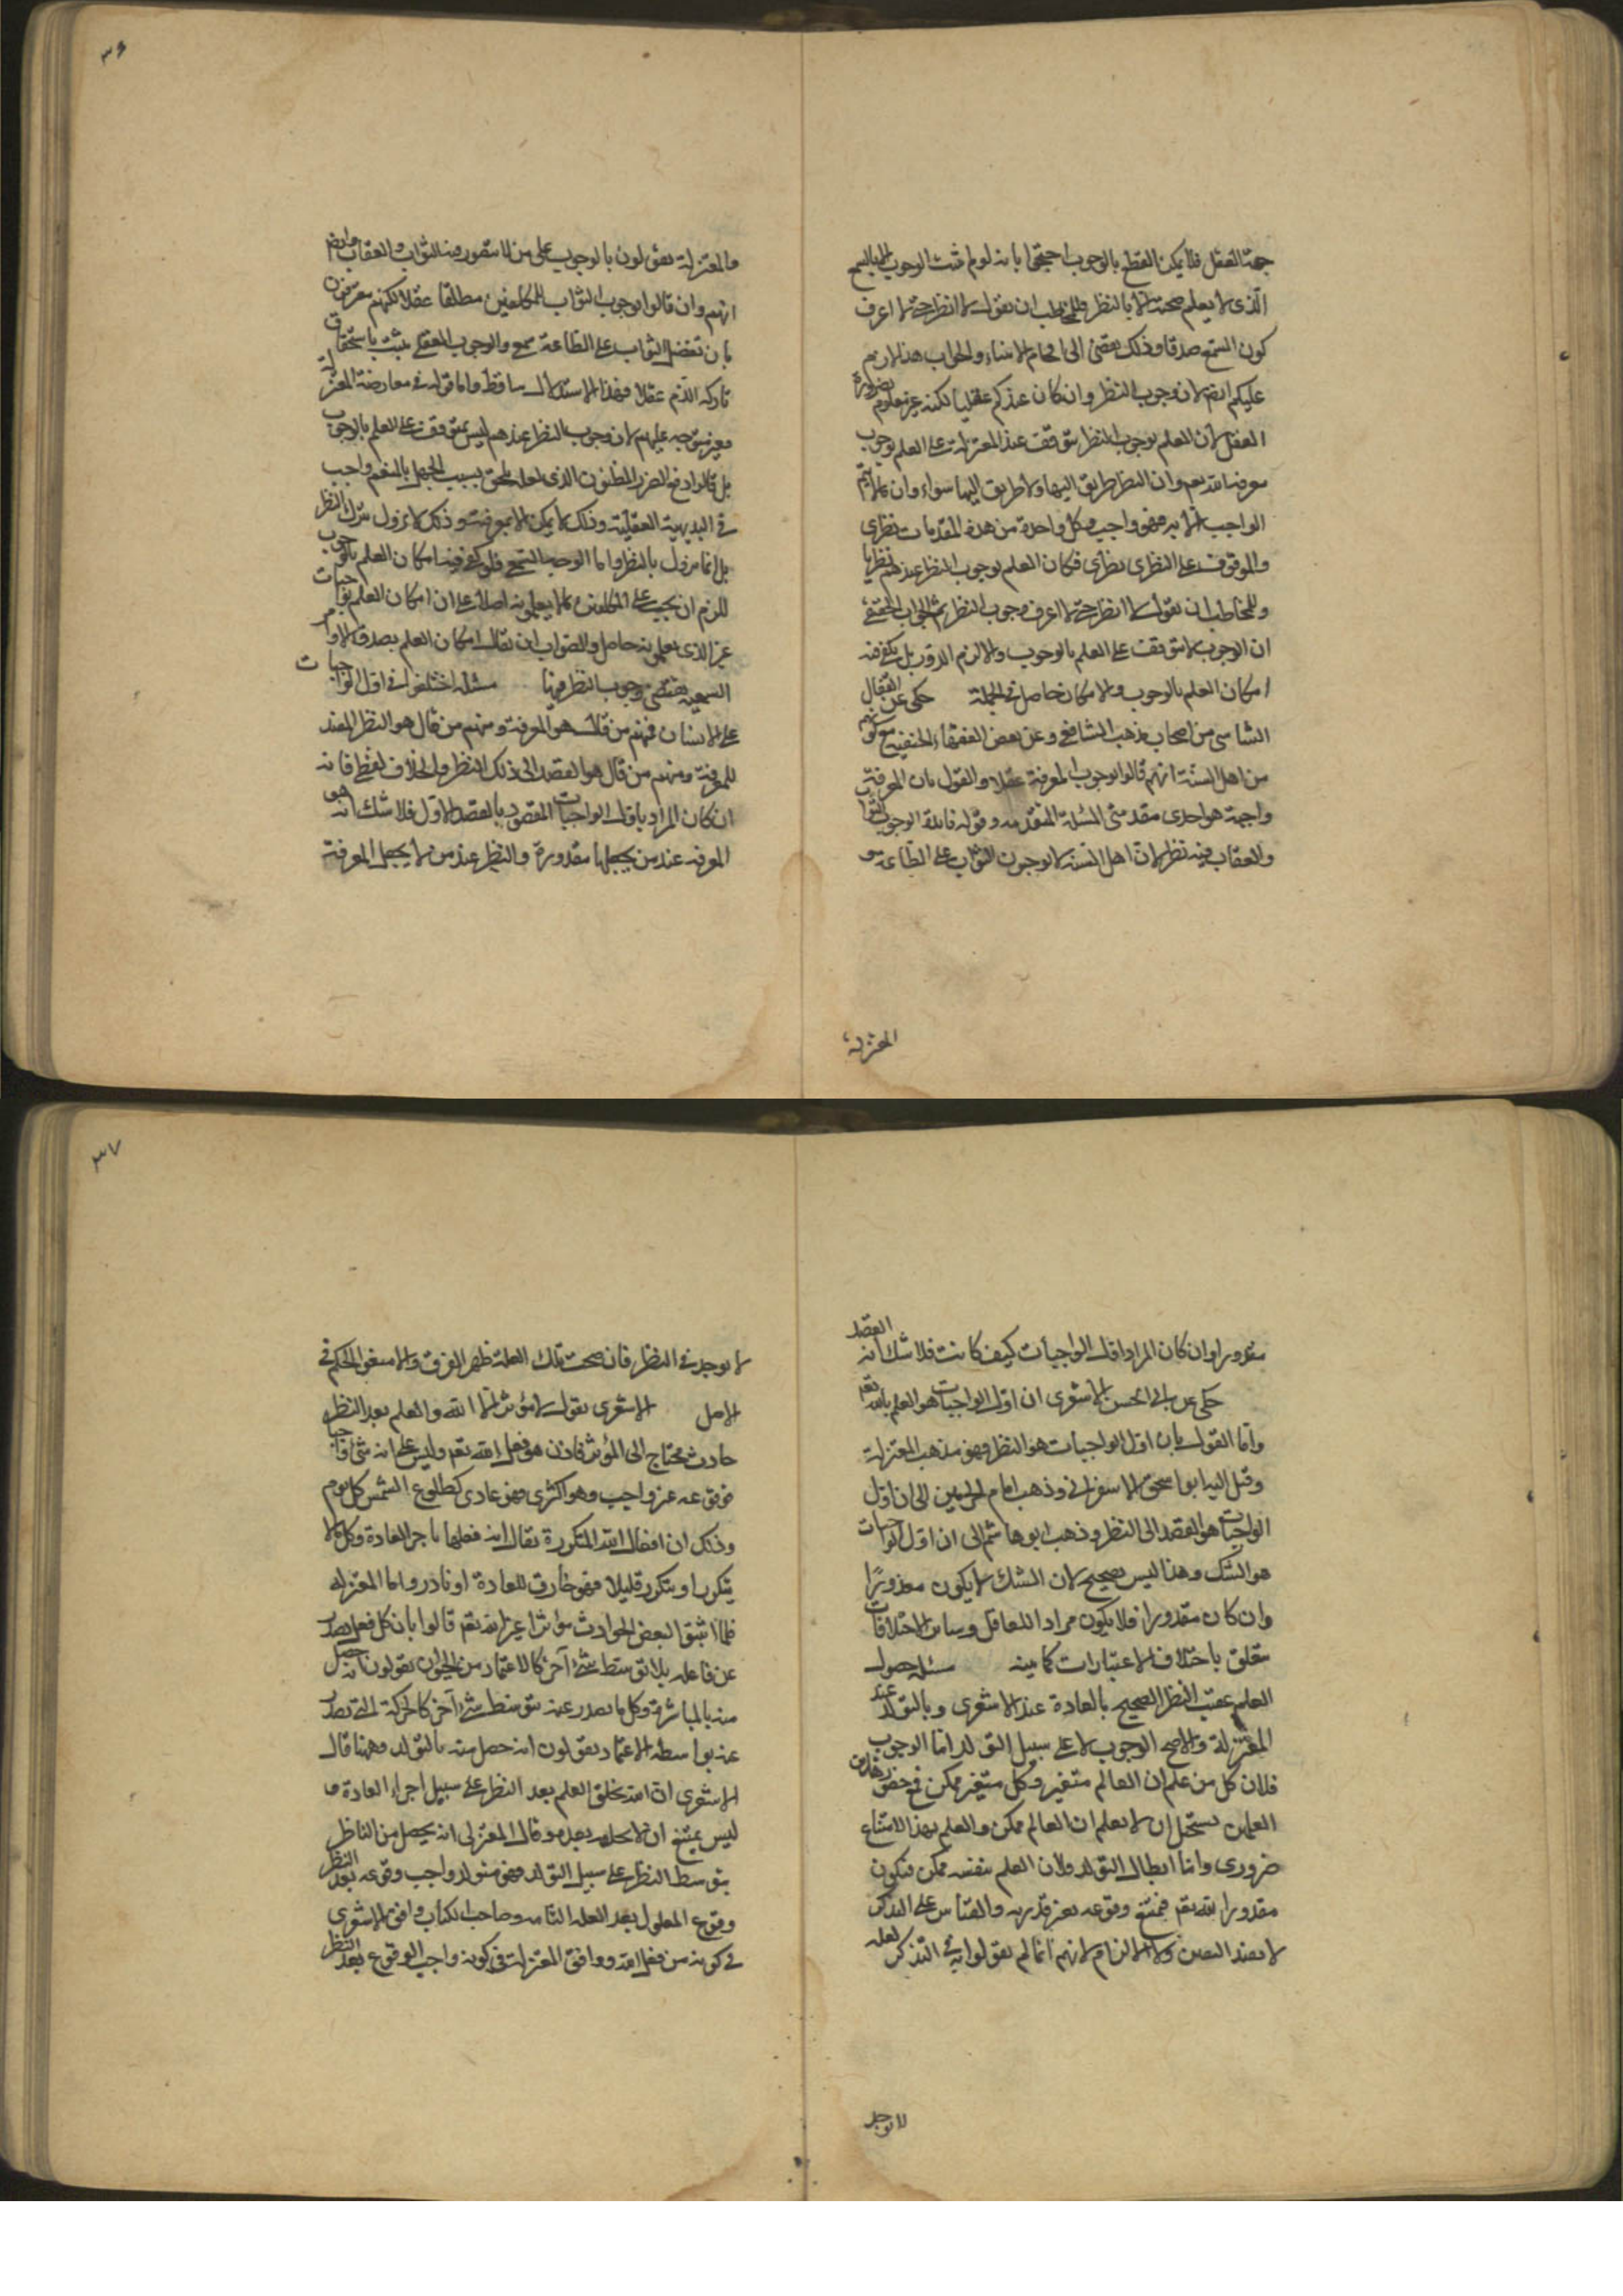 جهة العقل فلا يمكن القطع بالوجوب احتجوا بانه لو لم يثبت الوجوب الا بالسمع
الذى لا يعلم صحته الا بالنظر فللمخاطب ان يقول لا انظر حتى لا اعرف
كون السمع صدقا وذلك يفضى الى افحام الانبياء والجواب هذا لازم
عليكم ايضا لان وجوب النظر وان كان عندكم عقليا لكنه غير معلوم بضرورة
العقل لان العلم بوجوب النظر يتوقف عند المعتزلة على العلم بوجوب
معرفة الله تعم وان النظر طريق اليها ولا طريق اليها سواه وان ما لا يتم
الواجب الا به فهو واجب وكل واحدة من هذه المقدمات نظرى
والموقوف على النظرى نظرى فكان العلم بوجوب النظر عندهم نظريا
وللمخاطب ان يقول لا انظر حتى لا اعرف وجوب النظر ثم الجواب الحقيقى
ان الوجوب لا يتوقف على العلم بالوجوب والا لزم الدور بل يكفى فيه
امكان العلم بالوجوب والامكان حاصل فى الجملة حكى عن القفال
الشاسى من اصحاب مذهب الشافعى وعن بعض الفقهاء الحنفية مع كونهم
من اهل السنة انهم قالوا بوجوب المعرفة عقلا والقول بان المعرفة
واجبة هو احدى مقدمتى المسئلة المتقدمه وقوله فائدة الوجوب الثواب
والعقاب فيه نظر لان اهل السنة لا يوجبون الثواب على الطاعة و
المعتزلة
٣٦
والمعتزلة يقولون بالوجوب على من لا يتصور منه الثواب والعقاب وايضا
انهم وان قالوا بوجوب الثواب للمكلفين مطلقا عقلا لكنهم معترفون
بان تفضل الثواب على الطاعة سمع والوجوب العقلى يثبت باستحقاق
تاركه الذم عقلا فهذا الاستدلال ساقط واما قوله فى معارضة المعتزلة
فغير متوجه عليهم لان وجوب النظر عندهم ليس بمتوقف على العلم بالوجوب
بل قالوا دفع الضرر المظنون الذى لعله يلحق بسبب الجهل بالمنعم واجب
فى البديهية العقلية وذلك لا يمكن الا بمعرفته وذلك لا يزول بترك النظر
بل انما يزول بالنظر واما الوجوب السمعى فلو كفى فيه امكان العلم بالوجوب
للزم ان يجب على المكلفين ما لا يعلمونه اصلا على ان امكان العلم بواجبات
غير الذى يعلمونه حاصل والصواب ان يقال امكان العلم بصدق الاوامر
السمعية يقتضى وجوب النظر فيها مسئلة اختلفوا فى اول الواجبات
على الانسان فمنهم من قال هو المعرفة ومنهم من قال هو النظر المفيد
للمعرفة ومنهم من قال هو القصد الى ذلك النظر والخلاف لفظى فانه
ان كان المراد باول الواجبات المقصود بالقصد الاول فلا شك انه هو
المعرفة عند من يجعلها مقدورة والنظر عند من لا يجعل المعرفة
مقدورا وان كان المراد اول الواجبات كيف كانت فلا شك انه القصد
حكى عن ابى الحسن الاشعرى ان اول الواجبات هو العلم بالله تعم
واما القول بان اول الواجبات هو النظر فهو مذهب المعتزلة
وقيل اليه ابو اسحق الاسفراينى وذهب امام الحرمين الى ان اول
الواجبات هو القصد الى النظر وذهب ابو هاشم الى ان اول الواجبات
هو الشك وهذا ليس بصحيح لان الشك لا يكون مقدورًا
وان كان مقدورا فلا يكون مرادا للعاقل وسائر الاختلافات
متعلق باختلاف الاعتبارات كما بينه مسئلة حصول
العلم عقيب النظر الصحيح بالعادة عند الاشعرى وبالتولد عند
المعتزلة والاصح الوجوب لا على سبيل التولد اما الوجوب
فلان كل من علم ان العالم متغير وكل متغير ممكن فمع حضور هذين
العلمين يستحيل ان لا يعلم ان العالم ممكن والعلم بهذا الامتناع
ضرورى واما ابطال التولد فلان العلم بنفسه ممكن فيكون
مقدورا لله تعم فيمتنع وقوعه بغير قدرته والقياس على التذكر
لا يفيد اليقين ولا الالزام لانهم انما لم يقولوا به فى التذكر لعله
لا توجد
٣٧
لا توجد فى النظر فان صحت تلك العلة ظهر الفرق والا منعوا الحكم فى
الاصل الاشعرى يقول لا مؤثر الا الله والعلم بعد النظر
حادث محتاج الى المؤثر فاذن هو فعل الله تعم وليس على انه شئ واجبا
فوقوعه غير واجب وهو اكثرى فهو عادى كطلوع الشمس كل يوم
وذلك ان افعال الله المتكررة يقال انه فعلها باجر العادة وكل ما لا
يتكرر او يتكرر قليلا فهو خارق للعادة او نادر واما المعتزله
فلما اثبتوا لبعض الحوادث مؤثرا غير الله تعم قالوا بان كل فعل يصدر
عن فاعله بلا توسط شئ آخر كالاعتماد من الحيوان يقولون انه حصل
منه بالمباشرة وكل ما يصدر عنه بتوسط شئ آخر كالحركة التى تصدر
عنه بواسطة الاعتماد يقولون انه حصل منه بالتولد وههنا قال
الاشعرى ان الله يخلق العلم بعد النظر على سبيل اجراء العادة و
ليس يمتنع ان لا يخلقه بعده وقال المعتزلى انه يحصل من الناظر
بتوسط النظر على سبيل التولد فهو متولد واجب وقوعه بعد النظر
وقوع المعلول بعد العلة التامه وصاحب الكتاب وافق الاشعرى
فى كونه من فعل الله ووافق المعتزلة فى كونه واجب الوقوع بعد النظر